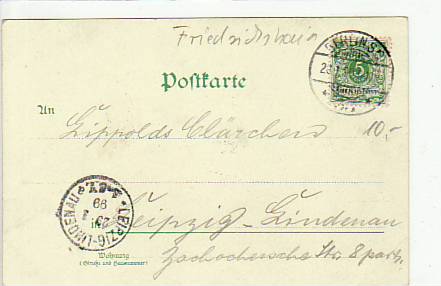 Friedrichshain
BERLIN S
5
Postkarte
An
Lippolds Clärchen
10.-
in
Leipzig-Lindenau
Zschochersche Str 8 part.
Wohnung
(Straße und Hausnummer)
LEIPZIG-LINDENAU
99